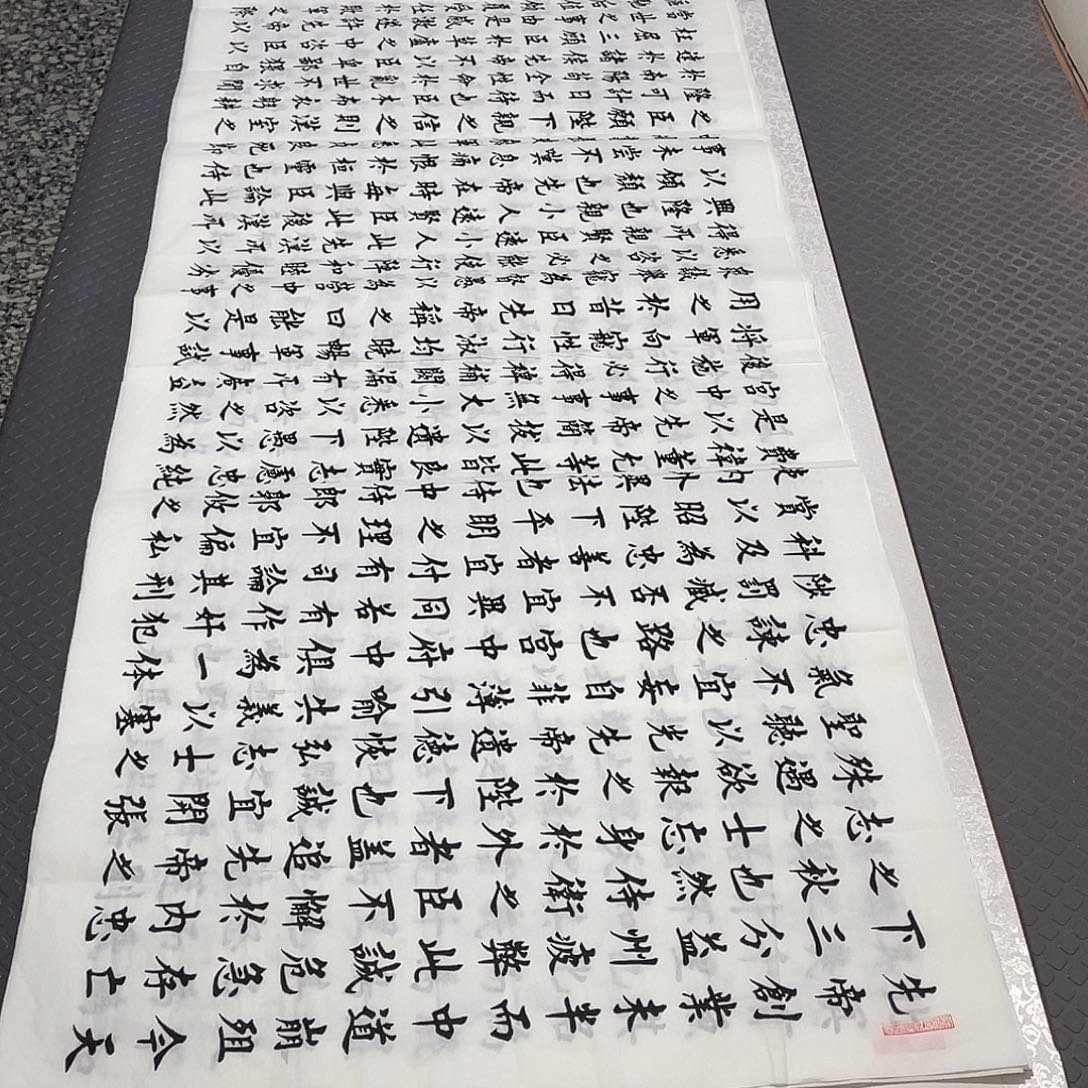 先帝創業未半而中道崩殂今天
下三分益州疲弊此誠危急存亡
之秋也然侍衛之臣不懈於內忠
志之士忘身於外者蓋追先帝之
殊遇欲報之於陛下也誠宜開張
聖聽以光先帝遺德恢弘志士之
氣不宜妄自菲薄引喻失義以塞
忠諫之路也宮中府中俱為一體
陟罰臧否不宜異同若有作奸犯
科及為忠善者宜付有司論其刑
賞以昭陛下平明之理不宜偏私
使內外異法也侍中侍郎郭攸之
費禕董允等此皆良實志慮忠純
是以先帝簡拔以遺陛下愚以為
宮中之事事無大小悉以咨之然
後施行必得裨補闕漏有所廣益
將軍向寵性行淑均曉暢軍事試
用之於昔日先帝稱之曰能是以
眾議舉寵為督愚以為營中之事
悉以咨之必能使行陣和睦優劣
得所親賢臣遠小人此先漢所以
興隆也親小人遠賢臣此後漢所
以傾頹也先帝在時每與臣論此
事未嘗不歎息痛恨於桓靈也侍
之臣願陛下親之信之則漢室之
隆可計日而待也臣本布衣躬耕
於南陽苟全性命於亂世不求聞
達於諸侯先帝不以臣卑鄙猥自
枉屈三顧臣於草廬之中諮臣以
當世之事由是感激